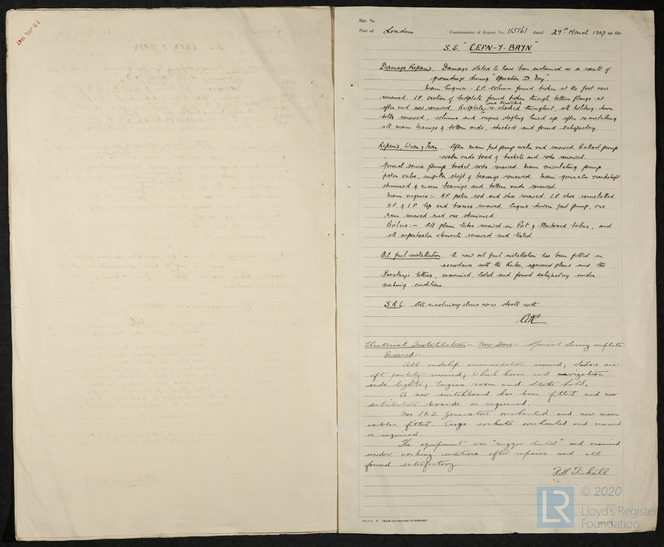 Rpt. No.
Port of London Continuation of Report No. 115161 dated 29th March 1947 on the
S.S. "CEFN-Y-BRYN"
Damage Repairs. Damage stated to have been sustained as a result of
grounding during "Operation D. Day"
Main Engines - L.P. column found broken at the foot now
renewed. L.P. section of bedplate found broken through bottom flange at
after end now renewed. Bedplate re-chocked throughout, all holding down
bolts renewed, columns and engine shafting lined up after remetalling
all main bearings & bottom ends, checked and found satisfactory.
Repairs, Wear & Tear. After main feed pump water end renewed. Ballast pump
water ends head & buckets and rods renewed.
General service pump bucket rods renewed. Main circulating pump
piston valve, impeller shaft & bearings renewed. Main generator crankshaft
skimmed & main bearings and bottom ends renewed.
Main engines :- H.P. piston rod and shoe renewed. I.P. shoe remetalled
H.P. & I.P. top end brasses renewed. Engine driven feed pump, one
ram renewed and one skimmed.
Boilers - All plain tubes renewed in Port & Starboard boilers, and
all superheater elements renewed and tested.
Oil fuel installation. A new oil fuel installation has been fitted in
accordance with the Rules, approved plans and the
Secretary's letters, examined, tested and found satisfactory under
working conditions.
S.R.L. All machinery items now dealt with.
Electrical Installation - Now Done - Special Survey complete
Renewed -
All midship accommodation rewired, sailors
aft partly rewired, Wheel house and navigation
side lights, Engine room and stoke hold.
A new switchboard has been fitted and new
distribution boards as required.
Nos 1 & 2 Generators overhauled and new main
cables fitted. Cargo sockets overhauled and renewed
as required
The equipment was "megger tested" and examined
under working conditions after repairs and all
found satisfactory
© 2020
LR
Lloyd's Register
Foundation